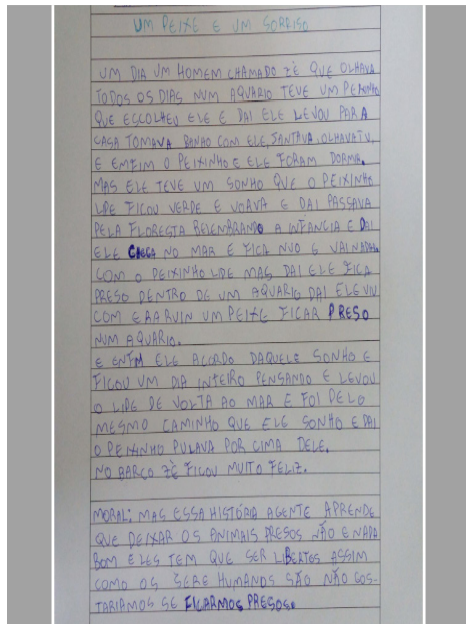 UM PEIXE E UM SORRISO
UM DIA UM HOMEM CHAMADO ZÈ QUE OLHAVA
TODOS OS DIAS NUM AQUARIO TEVE UM PEIXINHO
QUE ESCOLHEU ELE E DAI ELE LEVOU PARA
CASA TOMAVA BANHO COM ELE, JANTAVA, OLHAVA TV,
E EMFIM O PEIXINHO E ELE FORAM DORMA.
MAS ELE TEVE UM SONHO QUE O PEIXINHO
LIPE FICOU VERDE E VOAVA E DAI PASSAVA
PELA FLORESTA RELEMBRANDO A INFANCIA E DAI
ELE CHEGA NO MAR E FICA NUO E VAI NADAR
COM O PEIXINHO LIPE MAS DAI ELE FICA
PRESO DENTRO DE UM AQUARIO DAI ELE VIU
COM E RARVIN UM PEIXE FICAR PRESO
NUM AQUARIO.
E ENTM ELE ACORDO DAQUELE SONHO E
FICOU UM DIA INTEIRO PENSANDO E LEVOU
O LIPE DE VOLTA AO MAR E FOI PELO
MESMO CAMINHO QUE ELE SONHO E DAI
O PEIXINHO PULAVA POR CIMA DELE.
NO BARCO ZÈ FICOU MUITO FELIZ.
MORAL: MAS ESSA HISTÓRIA AGENTE APRENDE
QUE DEIXAR OS ANIMAIS PRESOS NÃO E NADA
BOM ELES TEM QUE SER LIBERTOS ASSIM
COMO OS SERE HUMANOS SÃO NÃO GOS-
TARIAMOS SE FICARMOS PRESOS.